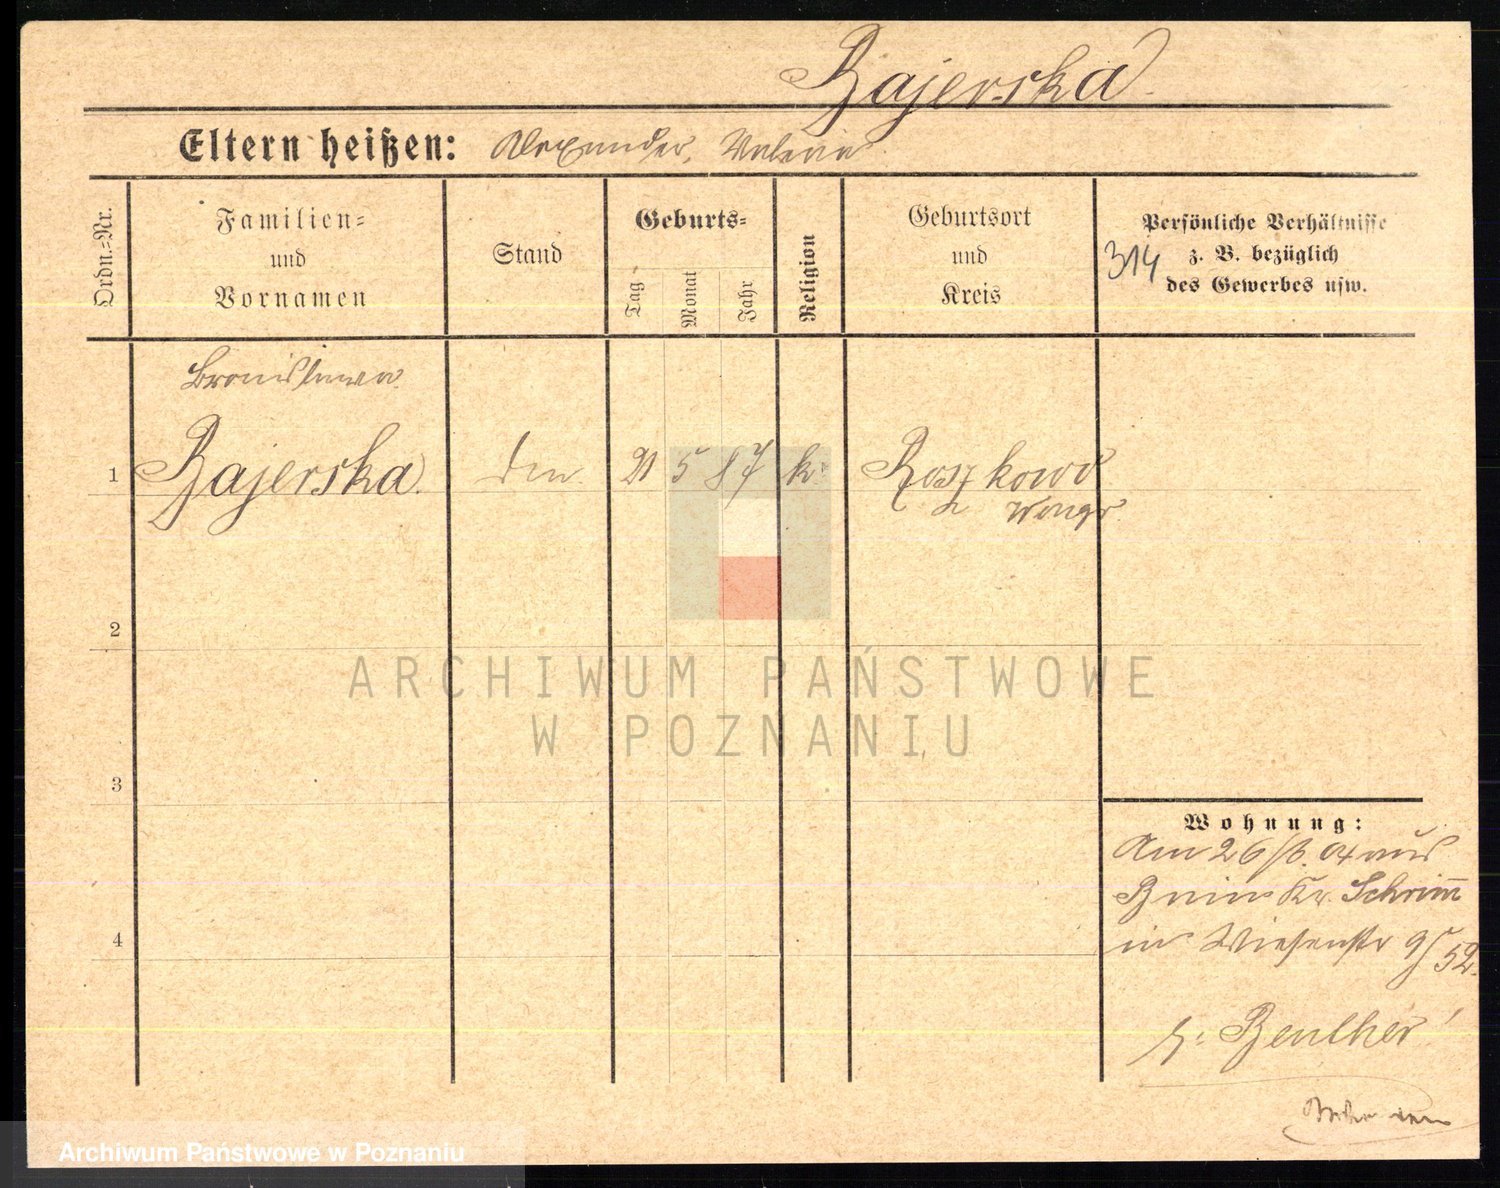 Bajerska
Eltern heißen: Alexander, Valerie
Ordn.=Nr.
Familien=
und
Vornamen
Stand
Geburts=
Tag
Monat
Jahr
Religion
Geburtsort
und
Kreis
Persönliche Verhältnisse
z. B. bezüglich
des Gewerbes usw.
314
Bronislawa
1 Bajerska. 21 5 87 k. Roszkowo
Wongr.
2
3
4
Wohnung:
Am 26/3. 04 aus
Bnin Kr. Schrimm
in Wiesenstr 9/52.
b. Beuther
ARCHIWUM PAŃSTWOWE
W POZNANIU
Archiwum Państwowe w Poznaniu